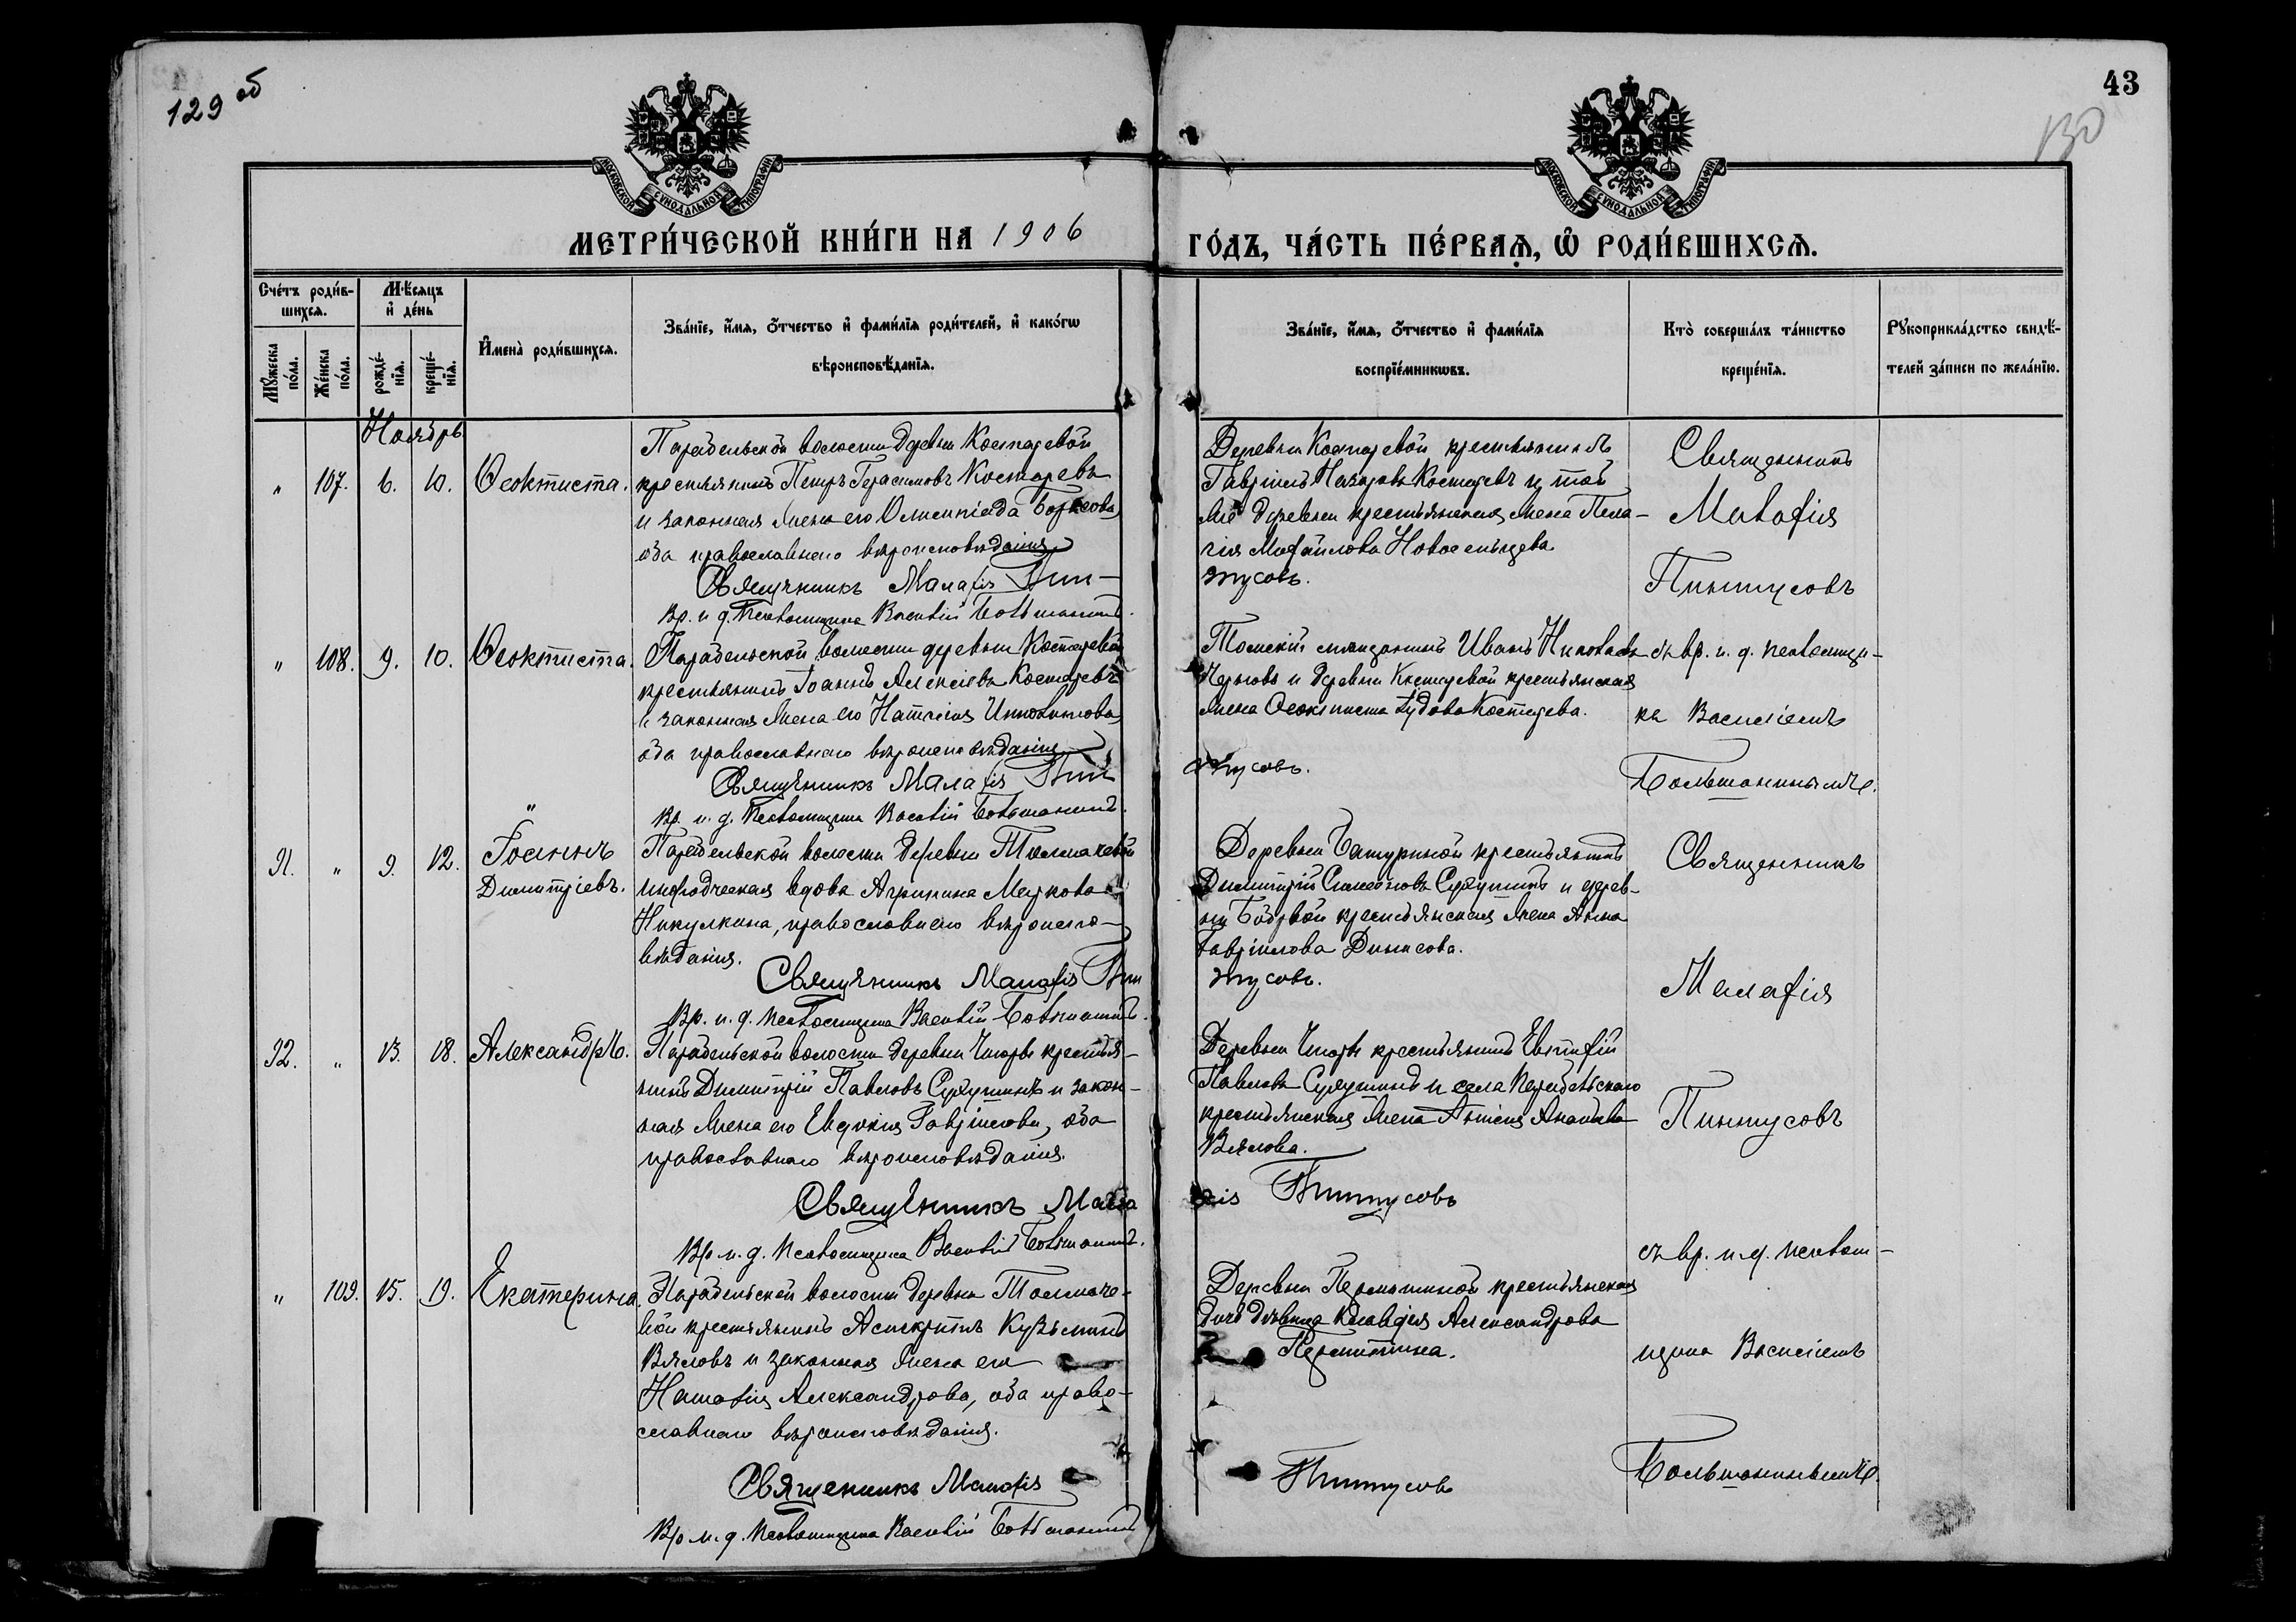 129 об
43
130
МОСКОВСКОЙ СѴНОДАЛЬНОЙ ТИПОГРАФІИ
МОСКОВСКОЙ СѴНОДАЛЬНОЙ ТИПОГРАФІИ
МЕТРИ́ЧЕСКОЙ КНИ́ГИ НА 1906
ГО́ДЪ, ЧА́СТЬ ПЕ́РВАѦ, Ѽ РОДИ́ВШИХСѦ.
Сче́тъ роди́в-
шихсѧ.
Мѣ́сѧцъ
и҆ де́нь
Мꙋ́жеска
по́ла.
Же́нска
по́ла.
рожде́-
нїѧ.
креще́-
нїѧ.
И҆мена̀ роди́вшихсѧ.
Зва́нїе, и҆́мѧ, ѻ҆́тчество и҆ фами́лїѧ роди́телей, и҆ како́гѡ
вѣроисповѣ́данїѧ.
Зва́нїе, и҆́мѧ, ѻ҆́тчество и҆ фами́лїѧ
воспрїе́мникѡвъ.
Кто̀ соверша́лъ та́инство
креще́нїѧ.
Рꙋкоприкла́дство свидѣ́-
телей за́писи по жела́нїю.
Ноябрь
" 107. 6. 10. Ѳеоктиста.
Парабельской волости деревни Костаревой
крестьянинъ Петръ Герасимовъ Костаревъ
и законная жена его Олимпіада
оба православнаго вѣроисповѣданія
Священникъ Малаѳія Пин-
Вр. и. д. псаломщика Василій Большанинъ.
Деревни Костаревой крестьянинъ
Гавріилъ Назаровъ Костаревъ и той
же деревни крестьянская жена Пела-
гія Михайлова Новосельцева.
тусовъ.
Священникъ
Малаѳія
Пинтусовъ
" 108. 9. 10. Ѳеоктиста.
Парабельской волости деревни Костаревой
крестьянинъ Іоаннъ Алексіевъ Костаревъ
и законная жена его Наталія Иннокентіева
оба православнаго вѣроисповѣданія
Священникъ Малаѳія Пин
Вр. и. д. псаломщика Василій Большанинъ.
Томскій мѣщанинъ Иванъ
и деревни Костаревой крестьянская
жена Ѳеоктиста Костарева.
тусовъ.
съ вр. и. д. псаломщи-
ка Василіемъ
Большанинымъ.
91. " 9. 12. Іоаннъ
Димитріевъ.
Парабельской волости деревни Толмачевой
инородческая вдова Агрипина Маркова
Никулкина, православнаго вѣроиспо-
вѣданія.
Священникъ Малаѳія Пин
Вр. и. д. псаломщика Василій Большанинъ.
Деревни Батуриной крестьянинъ
Димитрій Симеоновъ Сухушинъ и дерев-
ни крестьянская жена Анна
Гавріилова Денисова.
тусовъ.
Священникъ
Малаѳія
Пинтусовъ
92. " 13. 18. Александръ.
Парабельской волости деревни Чигары крестья-
нинъ Димитрій Павловъ Сухушинъ и закон-
ная жена его Евдокія Гавріилова, оба
православнаго вѣроисповѣданія.
Священникъ Мала
Вр. и. д. псаломщика Василій Большанинъ.
Деревни Чигары крестьянинъ Евтифій
Павловъ Сухушинъ и села Парабельскаго
крестьянская жена
Вялова.
ѳія Пинтусовъ
" 109. 15. 19. Екатерина.
Парабельской волости деревни Толмаче-
вой крестьянинъ Асинкритъ Кузьминъ
Вяловъ и законная жена его
Наталія Александрова, оба право-
славнаго вѣроисповѣданія.
Священникъ Малаѳія
Вр. и. д. псаломщика Василій Большанинъ
Деревни Перемитиной крестьянская
дочь дѣвица Клавдія Александрова
Перемитина.
Пинтусовъ
съ вр. и. д. псалом-
щика Василіемъ
Большанинымъ.